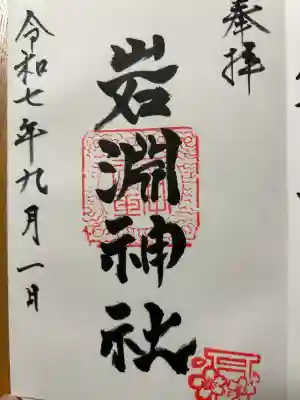 奉拝
岩淵神社
令和七年九月一日